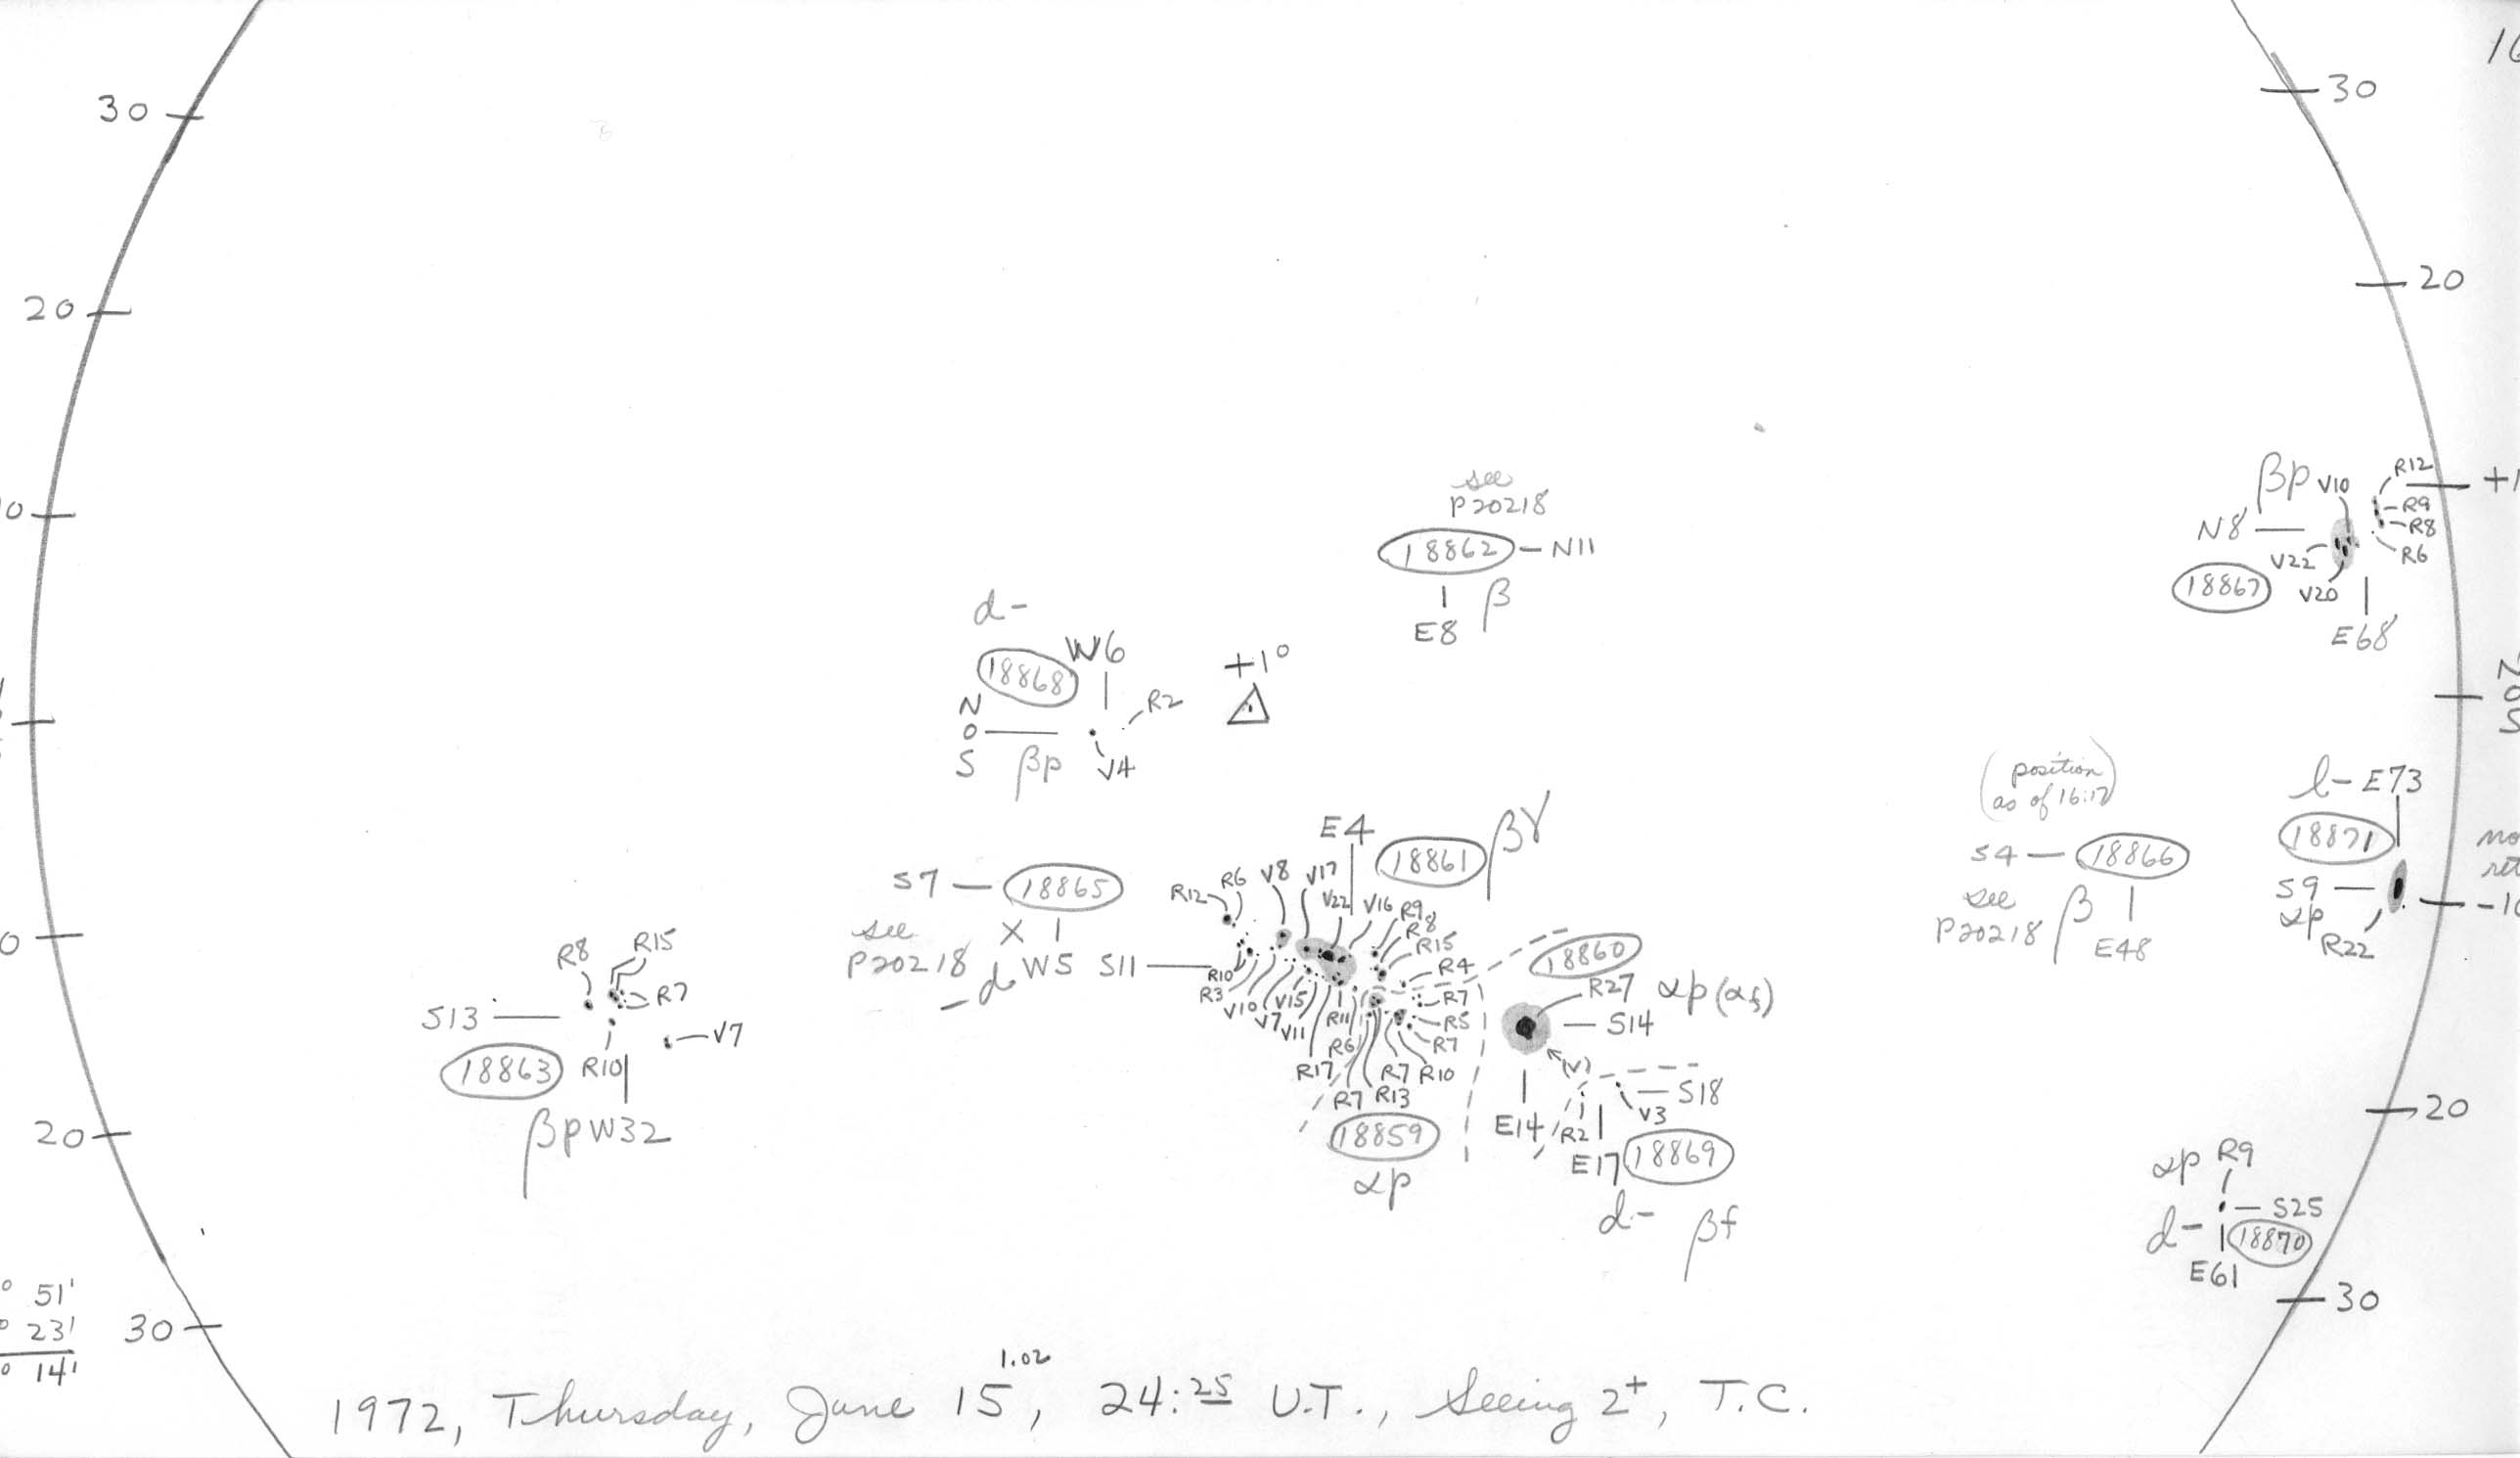 30
30
20
20
see
P20218
18862 – N11
E8 β
βp V10
R12
R9
R8
R6
N8
V22
V20
18867
E68
d-
18868
W6
R2
N
0
S
βp
V4
+1°
(position
as of 16:17)
S4 — 18866
see
P20218
β
E48
l- E73
18871
S9
αp
R22
-10
E4
18861
βγ
R12
R6
V8
V17
V22
V16
R9
R8
R15
R4
R7
R5
R7
S7 — 18865
see
P20218
X
-d
W5
S11
R10
R3
V10
V7
V15
V11
R11
R6
R17
R7
R10
R7
R13
18859
αp
18860
R27
αp(αf)
S14
E14
(V)
S18
V3
R2
E17
18869
d-
βf
R8
R15
R7
S13
V7
18863
R10
βp W32
20
20
αp R9
S25
d-
18870
E61
30
30
51'
23'
14'
1.02
1972, Thursday, June 15, 24:25 U.T., Seeing 2+, T.C.